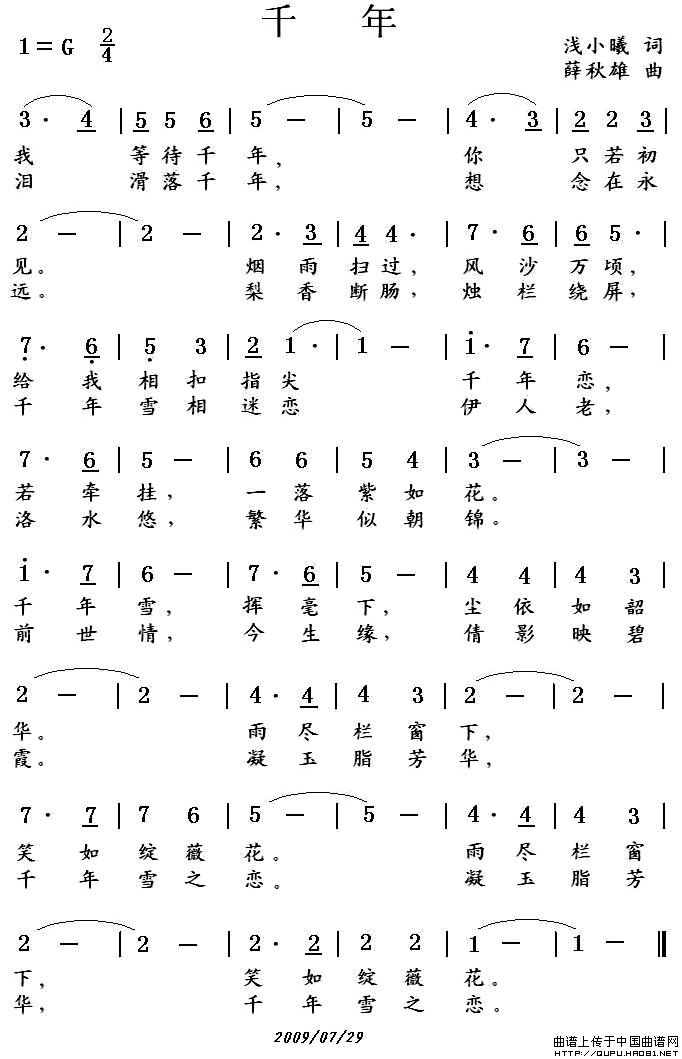 千 年
1=G 2/4
浅小曦 词
薛秋雄 曲
3· 4 | 5 5 6 | 5 – | 5 – | 4· 3 | 2 2 3 |
我 等待千 年, 你 只若初
泪 滑落千 年, 想 念在永
2 – | 2 – | 2· 3 | 4 4· | 7· 6 | 6 5· |
见。 烟 雨 扫过, 风 沙 万顷,
远。 梨 香 断肠, 烛 栏 绕屏,
7· 6 | 5 3 | 2 1· | 1 – | 1· 7 | 6 – |
给 我 相 扣 指 尖 千 年 恋,
千 年 雪 相 迷 恋 伊 人 老,
7· 6 | 5 – | 6 6 | 5 4 | 3 – | 3 – |
若 牵 挂, 一 落 紫 如 花。
洛 水 悠, 繁 华 似 朝 锦。
1· 7 | 6 – | 7· 6 | 5 – | 4 4 | 4 3 |
千 年 雪, 挥 毫 下, 尘 依 如 韶
前 世 情, 今 生 缘, 倩 影 映 碧
2 – | 2 – | 4· 4 | 4 3 | 2 – | 2 – |
华。 雨 尽 栏 窗 下,
霞。 凝 玉 脂 芳 华,
7· 7 | 7 6 | 5 – | 5 – | 4· 4 | 4 3 |
笑 如 绽 薇 花。 雨 尽 栏 窗
千 年 雪 之 恋。 凝 玉 脂 芳
2 – | 2 – | 2· 2 | 2 2 | 1 – | 1 – ‖
下, 笑 如 绽 薇 花。
华, 千 年 雪 之 恋。
2009/07/29
曲谱上传于中国曲谱网
HTTP://QUPU.HAO81.NET